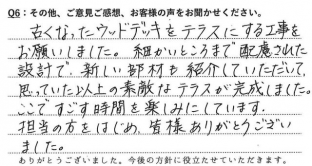 Q6：その他、ご意見ご感想、お客様の声をお聞かせください。
古くなったウッドデッキをテラスにする工事を
お願いしました。細かいところまで配慮された
設計で、新しい部材も紹介していただいて、
思っていた以上の素敵なテラスが完成しました。
ここですごす時間を楽しみにしています。
担当の方をはじめ、皆様ありがとうござい
ました。
ありがとうございました。今後の方針に役立たせていただきます。